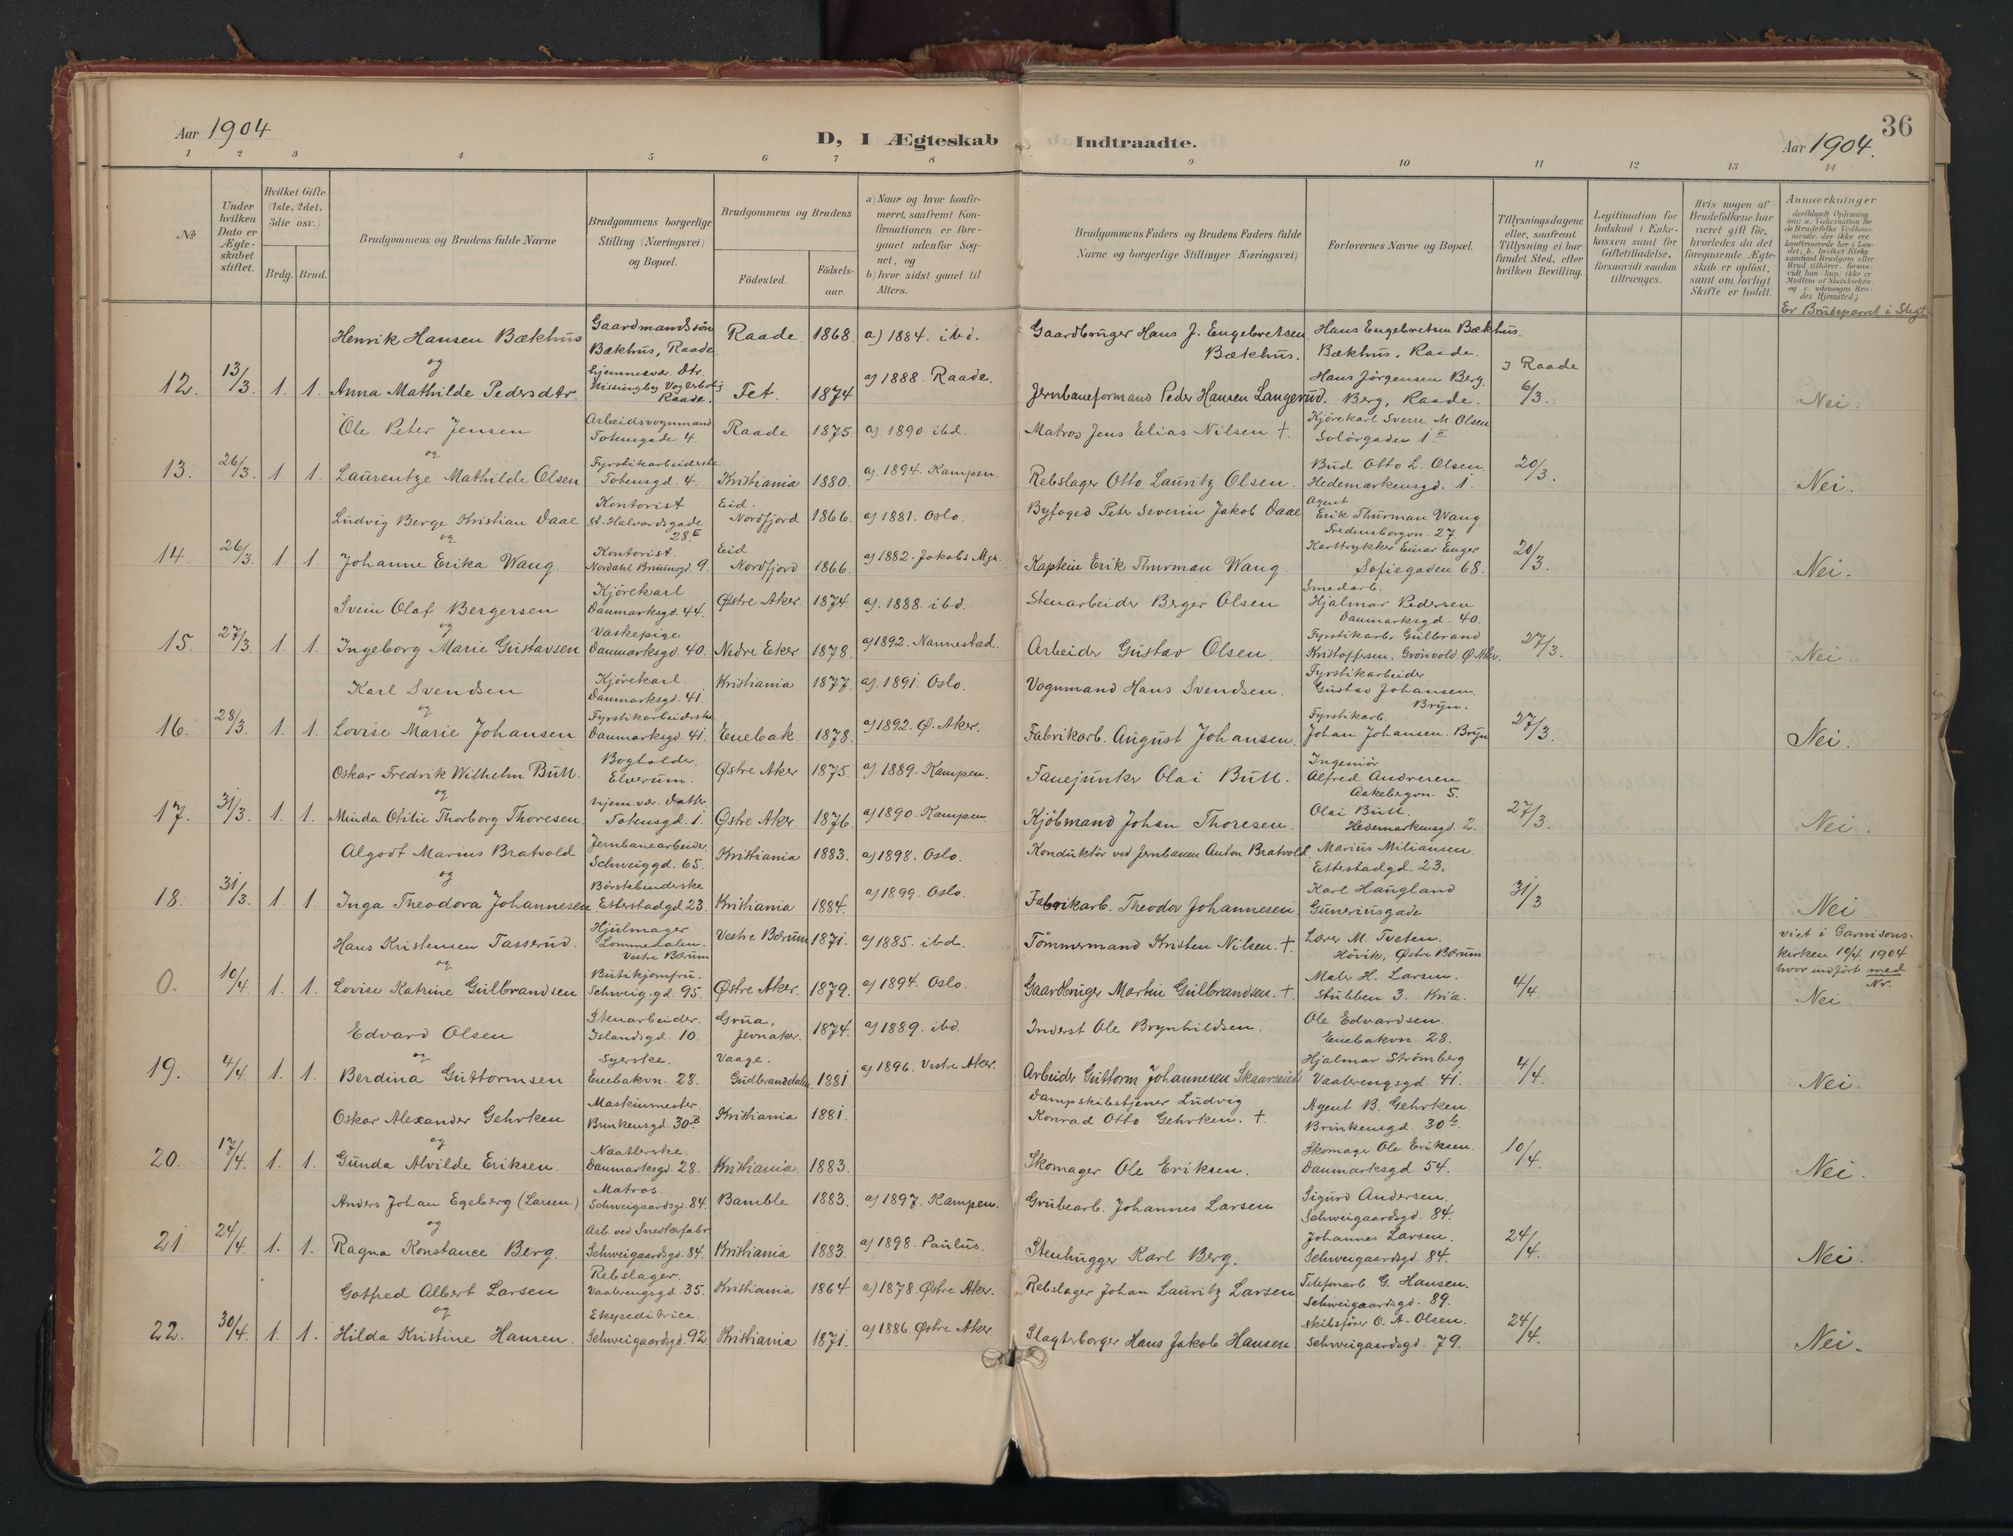 Aar 1904
D, I Ægteskab Indtraadte.
36
Aar 1904.
1 2 3 4 5 6 7 8 9 10 11 12 13 14
No
Under hvilken Dato er Ægteskabet stiftet.
Hvilket Gifte (1ste, 2det, 3die osv.
Brdg. Brud.
Brudgommens og Brudens fulde Navne
Brudgommens borgerlige Stilling (Næringsvei) og Bopæl.
Brudgommens og Brudens
Fødested.
Fødsels-aar.
a) Naar og hvor konfirmeret, saafremt Konfirmationen er foregaaet udenfor Sognet, og
b) hvor sidst gaaet til Alters.
Brudgommens Faders og Brudens Faders fulde Navne og borgerlige Stillinger (Næringsvei)
Forlovernes Navne og Bopæl.
Tillysningsdagene eller, saafremt Tillysning ei har fundet Sted, efter hvilken Bevilling.
Legitimation for Indskud i Enkekassen samt for Giftetilladelse, forsaavidt saadan tiltrænges.
Hvis nogen af Brudefolkene har været gift før, hvorledes da det foregaaende Ægteskab er opløst, samt om lovligt Skifte er holdt.
Anmerkninger
Er Brudeparret i Slegt
Henrik Hansen Bækhus Gaardmandssøn Bækhus, Raade Raade 1868 a) 1884. ibd. Gaardbruger Hans J. Engebretsen Bækhus. Hans Engebretsen Bækhus. Bækhus, Raade.
og
12. 13/3 1. 1. Anna Mathilde Pedersdtr hjemmevær. dtr. Raade. Fet. 1874 a) 1888. Raade. Jernbaneformand Peder Hansen Langerud. Hans Jörgensen Berg. Berg, Raade. I Raade 6/3. Nei.
Ole Peter Jensen Arbeidsvognmand Totensgade 4. Raade 1875. a) 1890 ibd. Matros Jens Elias Nilsen +. Kjörekarl Sverre M. Olsen Solörgaden 1 II
og
13. 26/3. 1 1. Laurentze Mathilde Olsen Fyrstikarbeiderske Totensgd. 4. Kristiania 1880. a) 1894. Kampen. Rebslager Otto Lauritz Olsen. Bud Otto L. Olsen. Hedemarkensgd. 1. 20/3. Nei.
Ludvig Berge Kristian Daae Kontorist St. Halvardsgade 28. Eid. Nordfjord 1866. a) 1881. Oslo. Byfoged Peter Severin Jakob Daae Agent Erik Thurman Wang. Fredensborgvn. 27
og
14. 26/3. 1. 1. Johanne Erika Wang. Kontorist. Nordahl Brunsgd. 9. Eid Nordfjord 1866. a) 1882. Jakobs Mgh. Kaptein Erik Thurman Wang. Karttrykker Einar Enger Sofiegaden 68. 20/3. Nei.
Svein Olaf Bergersen Kjörekarl Danmarksgd. 44. Østre Aker. 1874. a). 1888. ibd. Stenarbeider Berger Olsen Smedarb. Hjalmar Pedersen Danmarksgd. 40.
og
15. 27/3. 1. 1. Ingeborg Marie Gustavsen Vaskepige Danmarksgd. 40. Nedre Eker 1878. a) 1892. Nannestad. Arbeider Gustav Olsen. Fyrstikarb. Gulbrand Kristoffersen. Grönvold. Ø. Aker. 27/3. Nei.
Karl Svendsen Kjörekarl. Danmarksgd. 41. Kristiania 1877. a). 1891. Oslo. Vognmand Hans Svendsen. Fyrstikarbeider Gustav Johansen. Bryn.
og
16. 28/3. 1. 1. Lovise Marie Johansen Fyrstikarbeiderske Danmarksgd. 41. Enebak 1878. a) 1892. Ø. Aker. Fabrikarb. August Johansen. Fyrstikarb. Johan Johansen. Bryn 27/3. Nei.
Oskar Fredrik Wilhelm Bull. Bogholder. Elverum. Østre Aker 1875. a) 1889. Kampen. Fanejunker Olai Bull. Ingeniör Alfred Andresen. Aakebergvn. 5.
og
17. 31/3. 1. 1. Minda Otilie Thorborg Thoresen hjem. vær. datter. Totensgd. 1. Østre Aker. 1876. a) 1890. Kampen. Kjöbmand Johan Thoresen. Olai Bull. Hedemarkensgd. 2. 27/3. Nei.
Algodt Marius Bratvold Jernbanearbeider. Schweiggd. 65. Kristiania 1883. a) 1898. Oslo. Konduktör ved Jernbanen Anton Bratvold. Marius Miliansen. Ettestadgd. 23.
og
18. 31/3. 1. 1. Inga Theodora Johannesen Börstebinderske Etterstadgd. 23. Kristiania 1884. a) 1899. Oslo. Fabrikarb. Theodor Johannesen Karl Haugland Guneriusgade 31/3 Nei.
Hans Kristensen Tasserud. Hjulmager Lommedalen. Vestre Bærum Vestre Bærum 1871. a) 1885. ibd. Tömmermand Kristen Nilsen. + Lærer M. Tveten. Hövik, Østre Bærum viet i Garnisons-kirken 10/4 1904 hvor indfört med Nr.
og
0. 10/4. 1. 1. Lovise Katrine Gulbrandsen Butikjomfru. Schweig. gd. 95. Østre Aker. 1879. a) 1894. Oslo. Gaardbruger Martin Gulbrandsen. + Maler H. Larsen. Stubben 3. Kria. 4/4. Nei
Edvard Olsen Stenarbeider. Islandsgd. 10. Grua, Jevnaker. 1874. a) 1889. ibd. Inderst Ole Brynhildsen. Ole Edvardsen. Enebakvn. 28.
og
19. 4/4. 1. 1. Berdina Guttormsen Syerske. Enebakvn. 28. Vaage. Gudbrandsdalen 1881. a) 1896. Vestre Aker. Arbeider Guttorm Johannesen Hjalmar Strömberg Vaalerengsgd. 41. 4/4. Nei.
Oskar Alexander Gehrken Maskinmester. Brinkensgd. 30 B Kristiania 1881. Dampskibstjener Ludvig Konrad Otto Gehrken. + Agent B. Gehrken. Brinkensgd. 30 b.
og
20. 17/4. 1. 1. Gunda Alvilde Eriksen. Naatlerske. Danmarksgd. 28. Kristiania. 1883. Skomager Ole Eriksen. Skomager Ole Eriksen. Danmarksgd. 54. 10/4. Nei.
Anders Johan Egeberg (Larsen.) Matros. Schweigaardsgd. 84. Bamble 1883. a) 1897. Kampen. Grubearb. Johannes Larsen Sigurd Andersen. Schweigaardsgd. 84.
og
21 24/4. 1. 1. Ragna Konstance Berg. Schweigaardsgd. 84. Kristiania 1883. a) 1898. Paulus. Stenhugger Karl Berg. Johannes Larsen. Schweigaardsgd. 84. 24/4. Nei.
Gotfred Albert Larsen Rebslager. Vaalerengsgd. 35. Kristiania 1864 a) 1878. Østre Aker. Rebslager Johan Lauritz Larsen Telefonarb. G. Hansen. Schweigaardsgd. 89.
og
22. 30/4. 1. 1. Hilda Kristine Hansen. Ekspeditrice. Schweigaardsgd. 92. Kristiania 1871. a) 1886 Østre Aker. Slagterborger Hans Jakob Hansen Skibsförer O. A. Olsen. Schweigaardsgd. 79. 24/4. Nei.